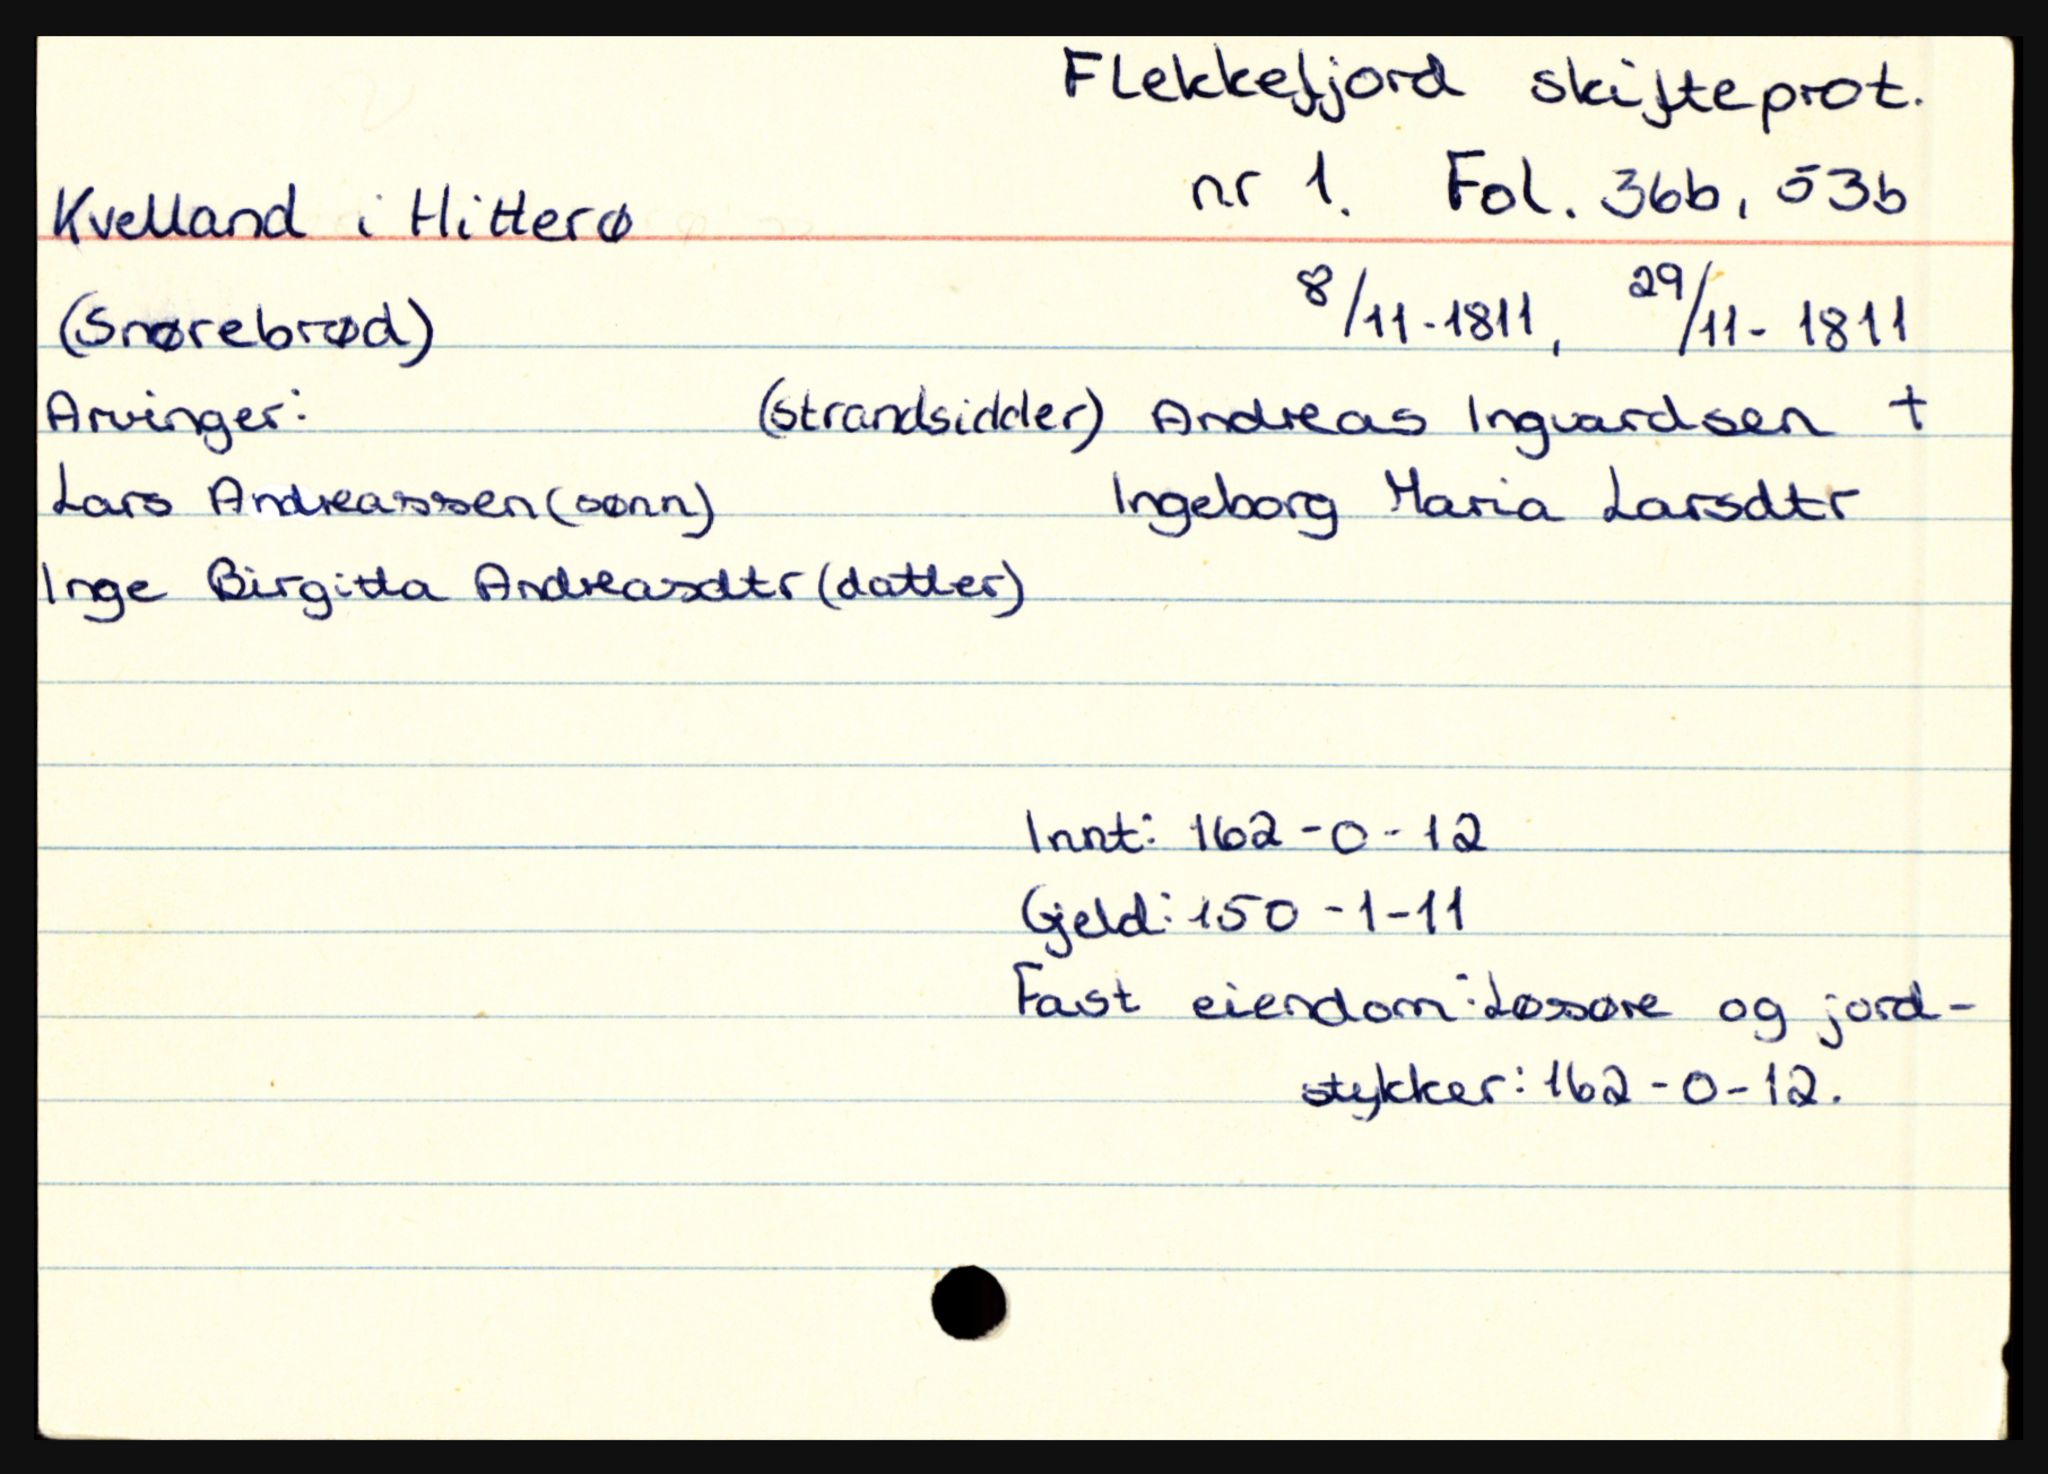 Flekkefjord skifteprot.
nr 1. Fol. 36b, 53b
Kvelland i Hitterø
(Snørebrød)
8/11-1811, 29/11-1811
Arvinger:
(strandsidder) Andreas Ingvardsen †
Lars Andreassen (sønn)
Ingeborg Maria Larsdtr
Inge Birgitta Andreasdtr (datter)
Innt: 162-0-12
Gjeld: 150-1-11
Fast eiendom: Løsøre og jord-
stykker: 162-0-12.